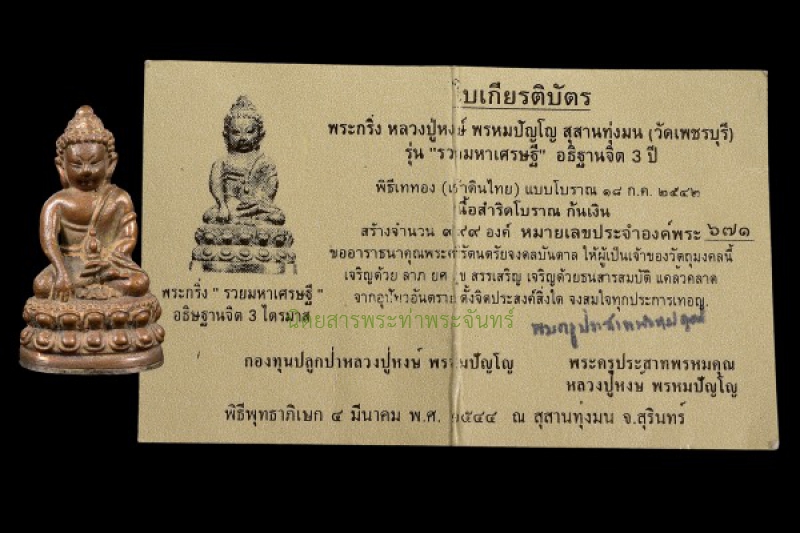 ใบเกียรติบัตร
พระกริ่ง หลวงปู่หงษ์ พรหมปัญโญ สุสานทุ่งมน (วัดเพชรบุรี)
รุ่น "รวยมหาเศรษฐี" อธิฐานจิต 3 ปี
พิธีเททอง (เบ้าดินไทย) แบบโบราณ ๑๘ ก.ค. ๒๕๔๒
เนื้อสำริดโบราณ ก้นเงิน
สร้างจำนวน ๙๙๙ องค์ หมายเลขประจำองค์พระ ๖๗๑
ขออาราธนาคุณพระศรีรัตนตรัยจงดลบันดาล ให้ผู้เป็นเจ้าของวัตถุมงคลนี้
เจริญด้วย ลาภ ยศ สุข สรรเสริญ เจริญด้วยธนสารสมบัติ แคล้วคลาด
จากอุปัทวอันตราย ตั้งจิตประสงค์สิ่งใด จงสมใจทุกประการเทอญ.
พระกริ่ง " รวยมหาเศรษฐี "
อธิษฐานจิต 3 ไตรมาส
นิตยสารพระท่าพระจันทร์
กองทุนปลูกป่าหลวงปู่หงษ์ พรหมปัญโญ
พระครูประสาทพรหมคุณ
หลวงปู่หงษ์ พรหมปัญโญ
พิธีพุทธาภิเษก ๔ มีนาคม พ.ศ. ๒๕๔๔ ณ สุสานทุ่งมน จ.สุรินทร์